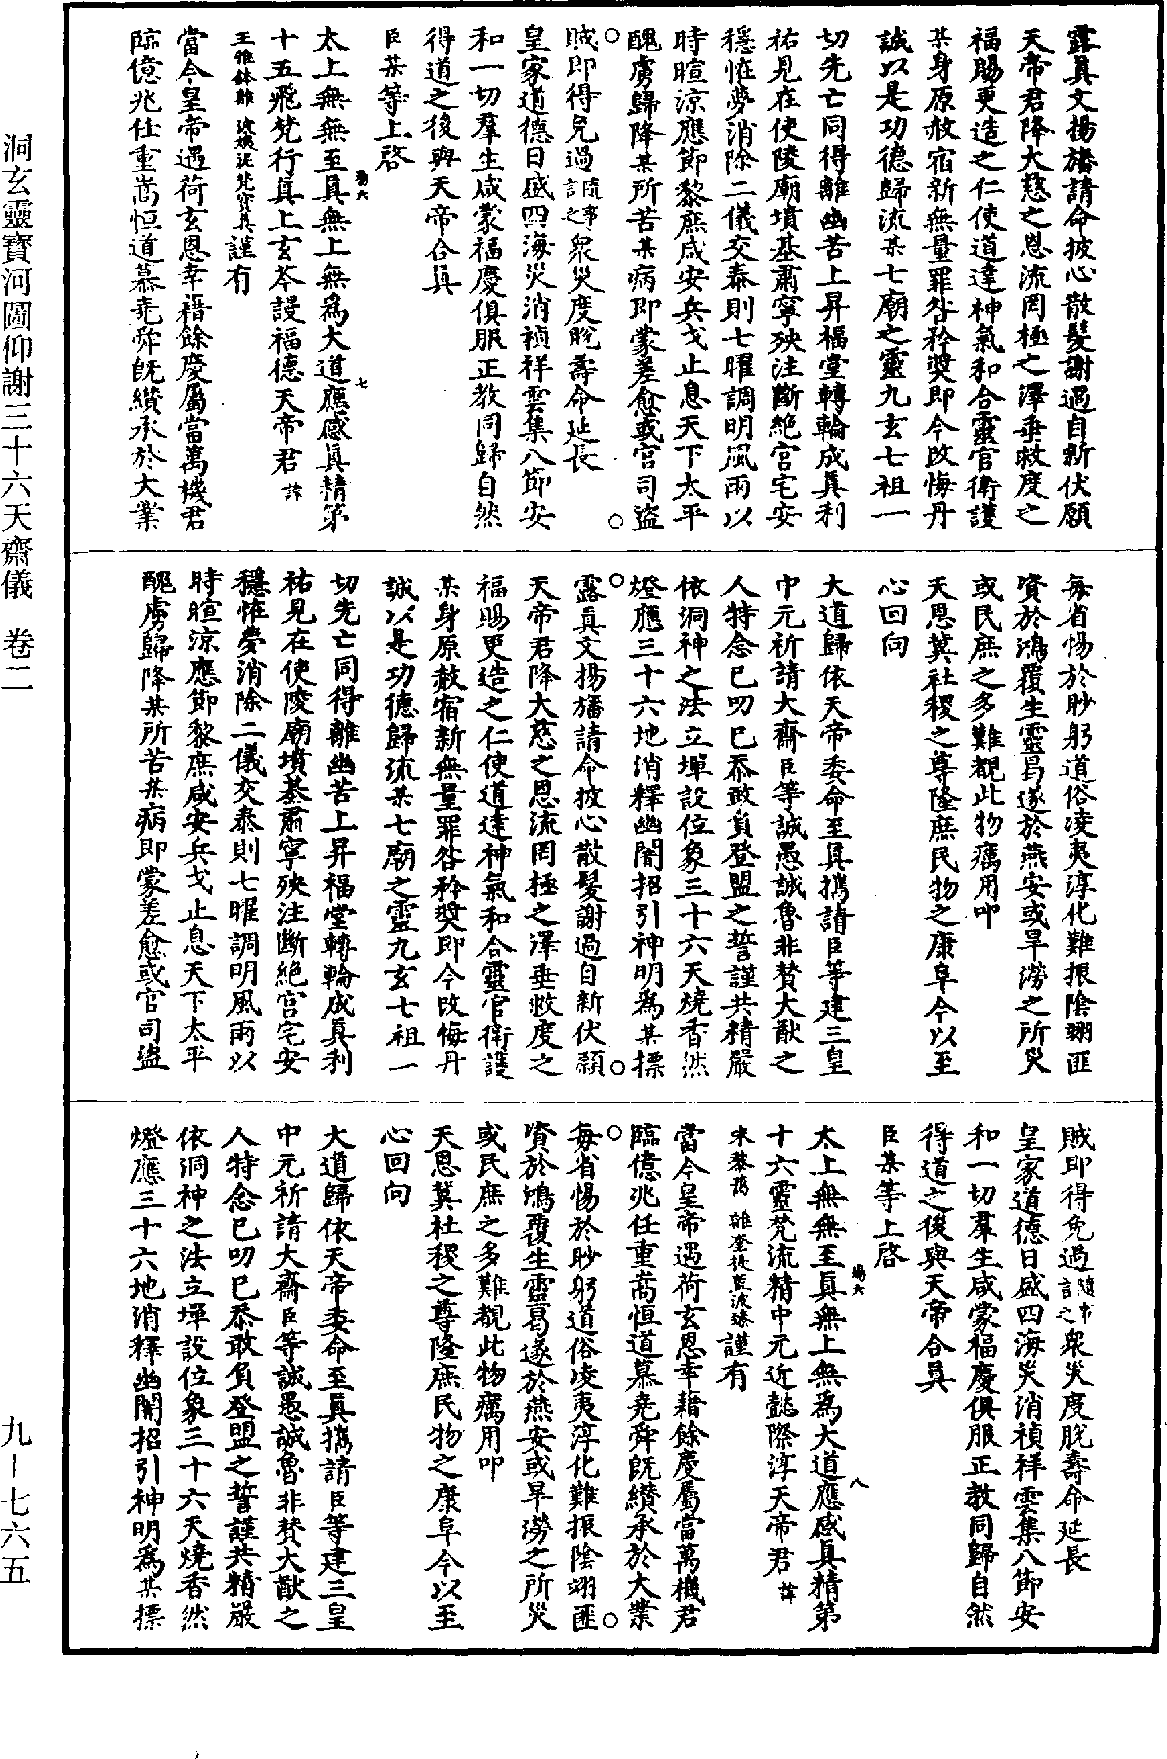 露真文揚旛請命披心散髮謝過自新伏願
天帝君降大慈之恩流罔極之澤垂救度之
福賜更造之仁使道達神氣和合靈官衛護
某身原赦宿新無量罪咎矜奬即今改悔丹
誠以是功德歸流某七廟之靈九玄七祖一
切先亡同得離幽苦上昇福堂轉輪成真利
祐見在使陵廟墳基肅寧殃注斷絕宮宅安
穩恠夢消除二儀交泰則七曜調明風雨以
時暄涼應節黎庶咸安兵戈止息天下太平
醜虜歸降某所苦某病即蒙差愈或官司盜
賊即得免過隨事言之衆災度脫壽命延長
皇家道德日盛四海災消禎祥雲集八節安
和一切羣生咸蒙福慶俱服正教同歸自然
得道之後與天帝合真
臣某等上啓
太上無無至真無上無爲大道應感真精第
十五飛梵行真上玄岑謾福德天帝君諱
謹有
當今皇帝遇荷玄恩幸藉餘慶屬當萬機君
臨億兆任重嵩恒道慕堯舜既纘承於大業
每省惕於眇躬道俗淩夷淳化難振陰翊匪
資於鴻覆生靈曷遂於燕安或旱澇之所災
或民庶之多難覩此物癘用叩
天恩冀社稷之尊隆庶民物之康阜今以至
心回向
大道歸依天帝委命至真擕請臣等建三皇
中元祈請大齋臣等誠愚誠魯非賛大猷之
人特念已叨已忝敢負登盟之誓謹共精嚴
依洞神之法立墠設位象三十六天燒香然
燈應三十六地消釋幽闇招引神明爲某標
露真文揚旛請命披心散髮謝過自新伏願
天帝君降大慈之恩流罔極之澤垂救度之
福賜更造之仁使道達神氣和合靈官衛護
某身原赦宿新無量罪咎矜奬即今改悔丹
誠以是功德歸流某七廟之靈九玄七祖一
切先亡同得離幽苦上昇福堂轉輪成真利
祐見在使陵廟墳基肅寧殃注斷絕宮宅安
穩恠夢消除二儀交泰則七曜調明風雨以
時暄涼應節黎庶咸安兵戈止息天下太平
醜虜歸降某所苦某病即蒙差愈或官司盜
賊即得免過隨事言之衆災度脫壽命延長
皇家道德日盛四海災消禎祥雲集八節安
和一切羣生咸蒙福慶俱服正教同歸自然
得道之後與天帝合真
臣某等上啓
太上無無至真無上無爲大道應感真精第
十六靈梵流精中元近懿際淳天帝君諱
謹有
當今皇帝遇荷玄恩幸藉餘慶屬當萬機君
臨億兆任重嵩恒道慕堯舜既纘承於大業
每省惕於眇躬道俗淩夷淳化難振陰翊匪
資於鴻覆生靈曷遂於燕安或旱澇之所災
或民庶之多難覩此物癘用叩
天恩冀社稷之尊隆庶民物之康阜今以至
心回向
大道歸依天帝委命至真擕請臣等建三皇
中元祈請大齋臣等誠愚誠魯非賛大猷之
人特念已叨已忝敢負登盟之誓謹共精嚴
依洞神之法立墠設位象三十六天燒香然
燈應三十六地消釋幽闇招引神明爲某標
洞玄靈寶河圖仰謝三十六天齋儀 卷二
九-七六五